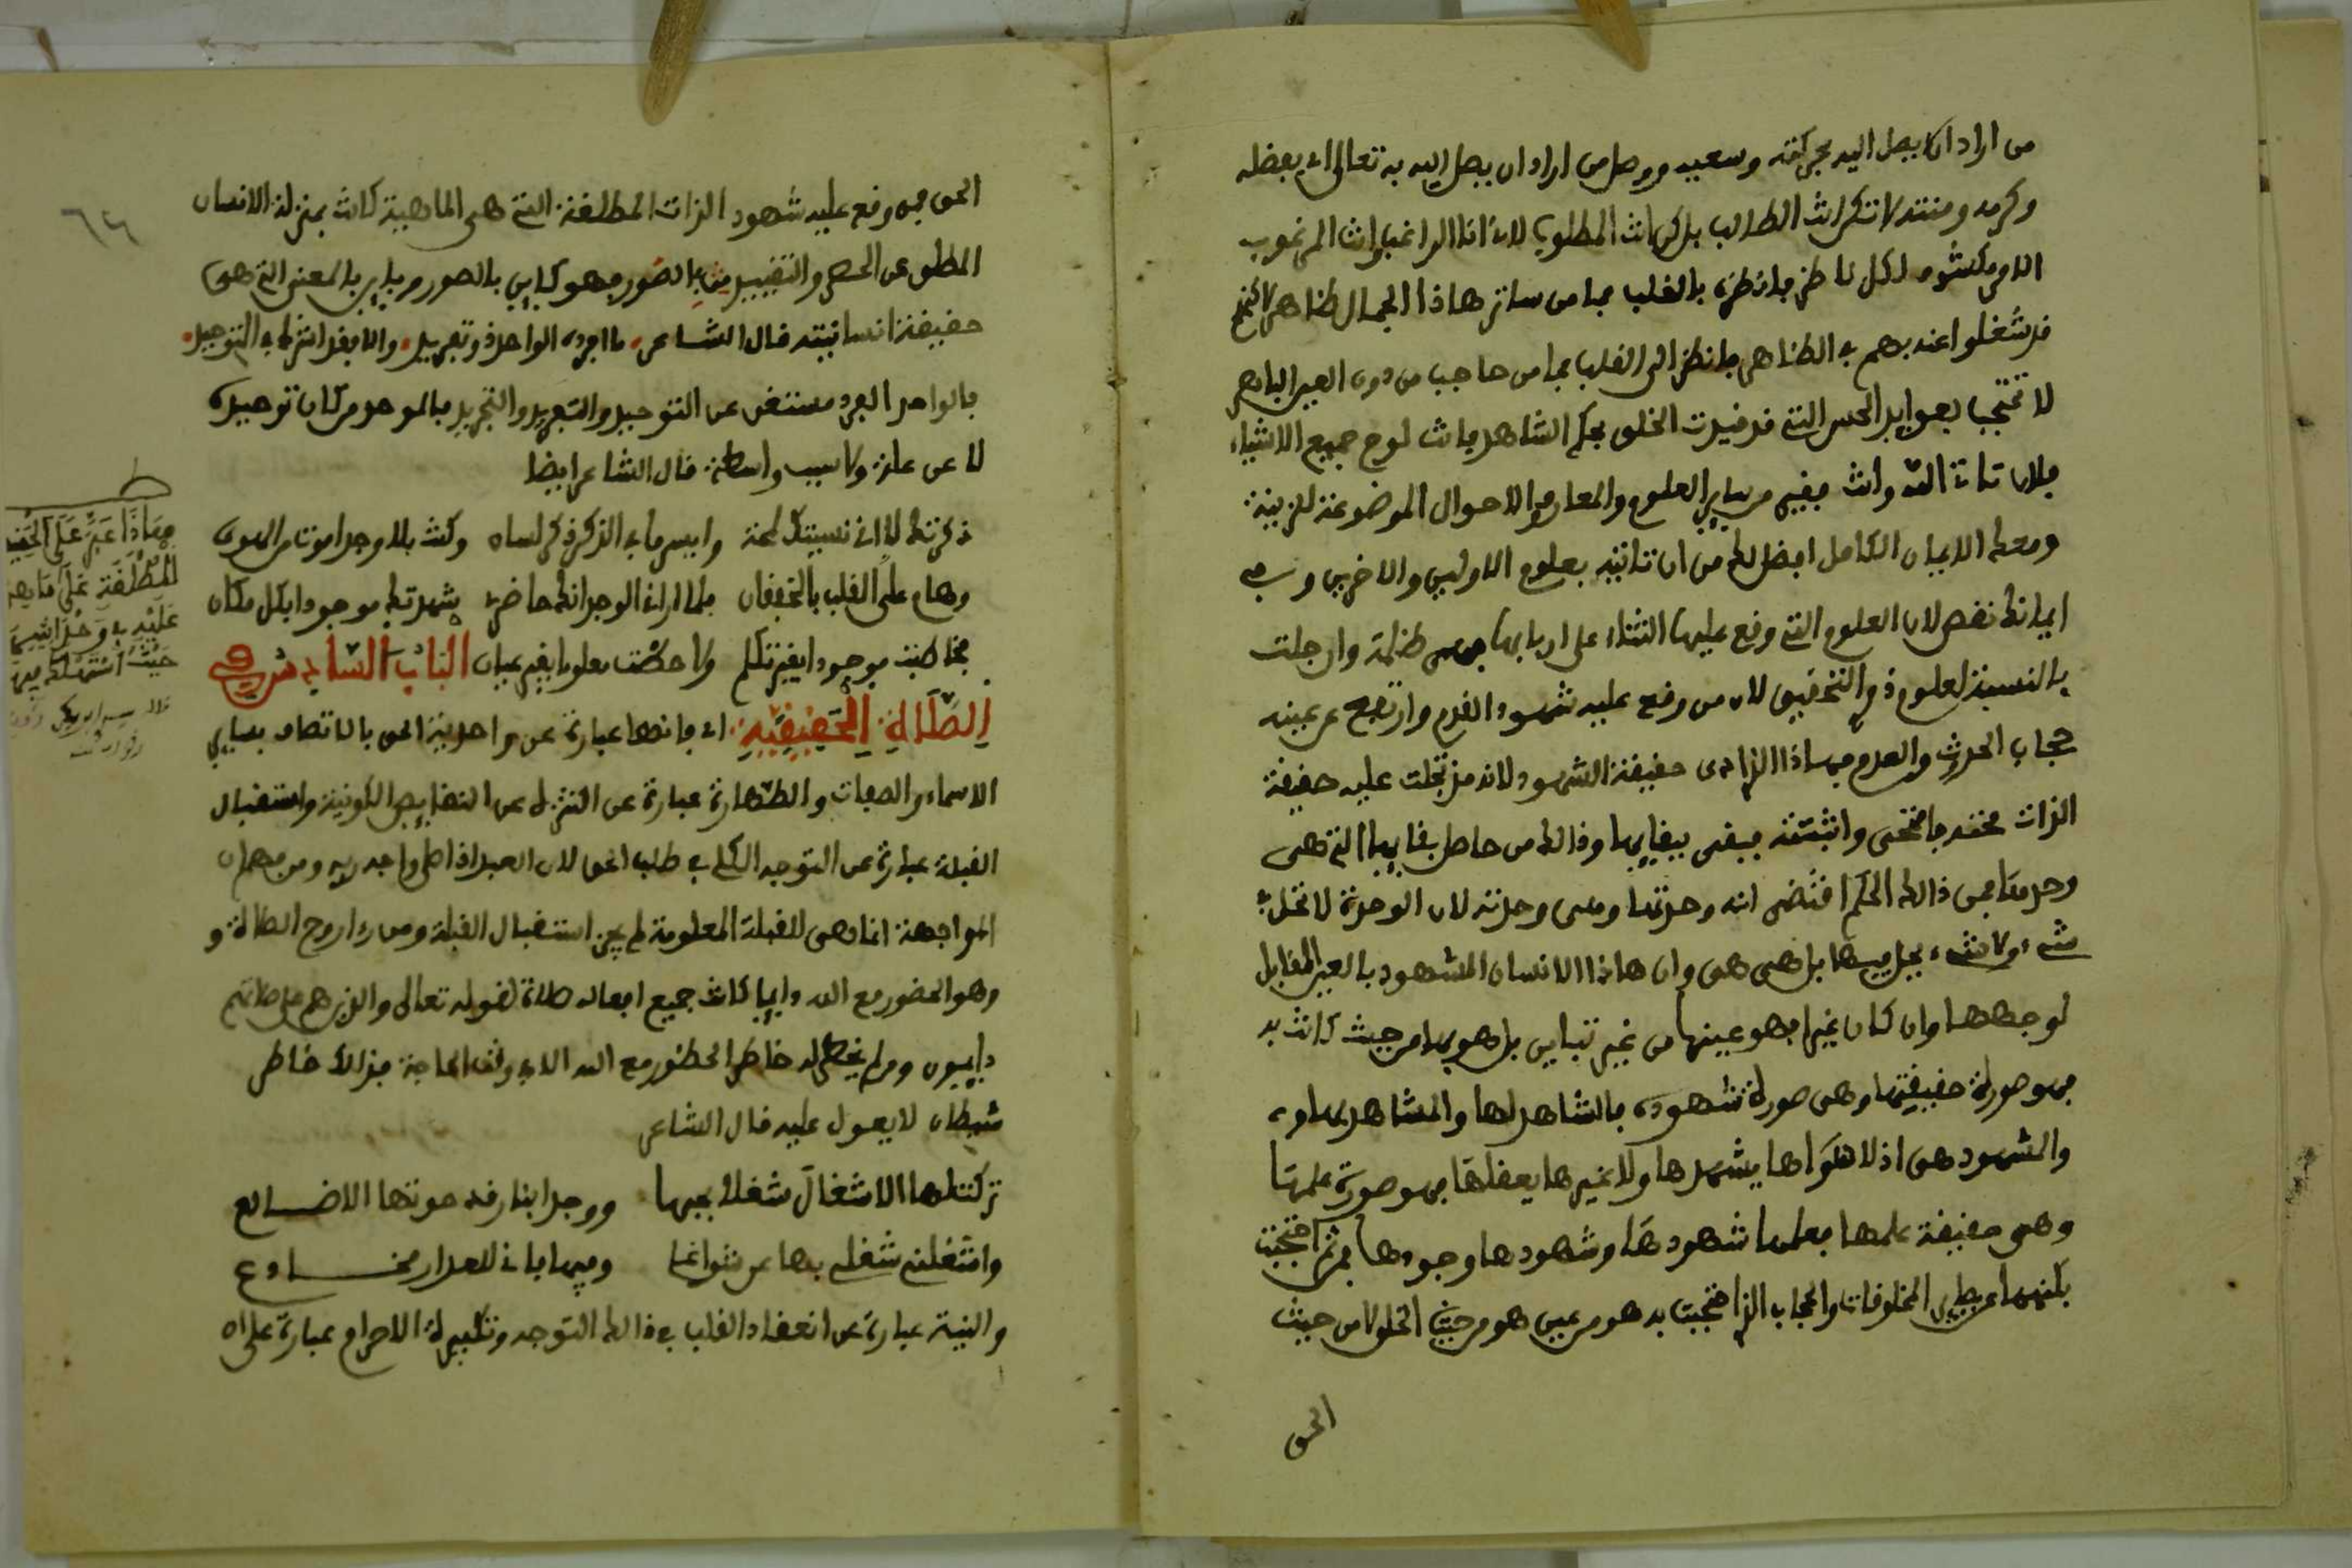 من اراد ان يصل اليه بحركته وسعيه ووصل من اراد ان يصل اليه به تعالى اي بفضله
وكرمه ومنته لا تكن انت الطالب بل كن انت المطلوب لا انا الراغب وانت المرغوب
الامر مكشوف لكل ناظر فانظره بالقلب فما من ساتر هاذا الجمال ظاهر لاكنهم
قد شغلوا عنه بهم في الظاهر فانظر الى القلب فما من حاجب من دون العين الباصر
لا تحتجب بعوايد الحس التي قد قيدت الخلق بحكم الشاهد فانت لوح جميع الاشياء
فلان تاتي الله وانت فقير من ساير العلوم والمعارف والاحوال الموضوعة للزينة
ومعك الايمان الكامل افضل لك من ان تاتيه بعلوم الاولين والاخرين وفي
ايمانك نقص لان العلوم التي وقع عليها الثناء على اربابها فهي ظلمة وان جلت
بالنسبة لعلوم ذوي التحقيق لان من وقع عليه شهود القدم وارتفع عن عينه
حجاب الحدث والعدم فهاذا الذي ادى حقيقة الشهود لانه مذ تجلت عليه حقيقة
الذات محته فامتحى واثبتته فبقى ببقايها وذالك من حاصل بقايها التي هي
وحدتها فمن ذالك الحكم اقتضى انه وحدتها وهي وحدته لان الوحدة لا تحل في
شيء ولا شيء يحل فيها بل هي هي وان هاذا الانسان المشهود بالعين المقابل
لوجهها وان كان غيرا فهو عينها من غير تباين بل هو بها من حيث كانت به
فهو صورة حقيقتها وهي صورة شهوده فالشاهد لها والمشاهد بها
والمشهود هي اذ لا سواها يشهدها ولا غيرها يعقلها فهو صورة علمها
وهي حقيقة علمها فعلمها شهودها وشهودها وجودها فمن ثم احتجبت
بكنهها عن بطون المخلوقات والحجاب الذي احتجبت به هو من عين هو من حيث الخلق لا من حيث
الحق
الحق فمن وقع عليه شهود الذات المطلقة التي هي الماهية كانت بمنزلة الانسان
المطلق عن الحصر والتقييد بالصور فهو كاين بالصور وباين بالمعنى التي هي
حقيقة انسانيته قال الشاعر ما افرد الواحد ذو تفريد والا فقد اشرك في التوحيد
فالواحد الفرد مستغن عن التوحيد والتفريد والتجريد فالموحد من كان توحيده
لا عن علة ولا سبب واسطة قال الشاعر ايضا
ذكرتك لا اني نسيتك لمحة وايسر ما في الذكر ذكر لسان وكنت بلا وجد اموت من الهوى
وهام على القلب بالخفقان فلما اراني الوجد انك حاضري شهدتك موجودا بكل مكان
فخاطبت موجودا بغير تكلم ولاحظت معلوما بغير عيان الباب السادس في
الصلاة الحقيقية اي فانها عبارة عن واحدية الحق بالاتصاف بساير
الاسماء والصفات والطهارة عبارة عن التنزه عن النقايص الكونية واستقبال
القبلة عبارة عن التوجه الكلي في طلب الحق لان العبد اذا صلى واجه ربه ومن فهم ان
المواجهة انما هي للقبلة المعلومة لم يجز استقبال القبلة ومن راى روح الصلاة و
وهو الحضور مع الله دايما كانت جميع افعاله صلاة لقوله تعالى والذين هم على صلاتهم
دايمون ومن لم يخطر له خاطر الحضور مع الله الا في وقت الحاجة فذلك خاطر
شيطان لا يعول عليه قال الشاعر
تركت لها الاشغال شغلا بحبها ووجدا بنار قد حوتها الاضالع
واشغلني شغلي بها عن شواغلها وفيها فاني للعذار مخادع
والنية عبارة عن انعقاد القلب في ذالك التوجه وتكبيرة الاحرام عبارة على ان
فهاذا عبر على الحقيقة
المطلقة على ما هي
عليه في وحدانيتها
حيث استهلك فيها